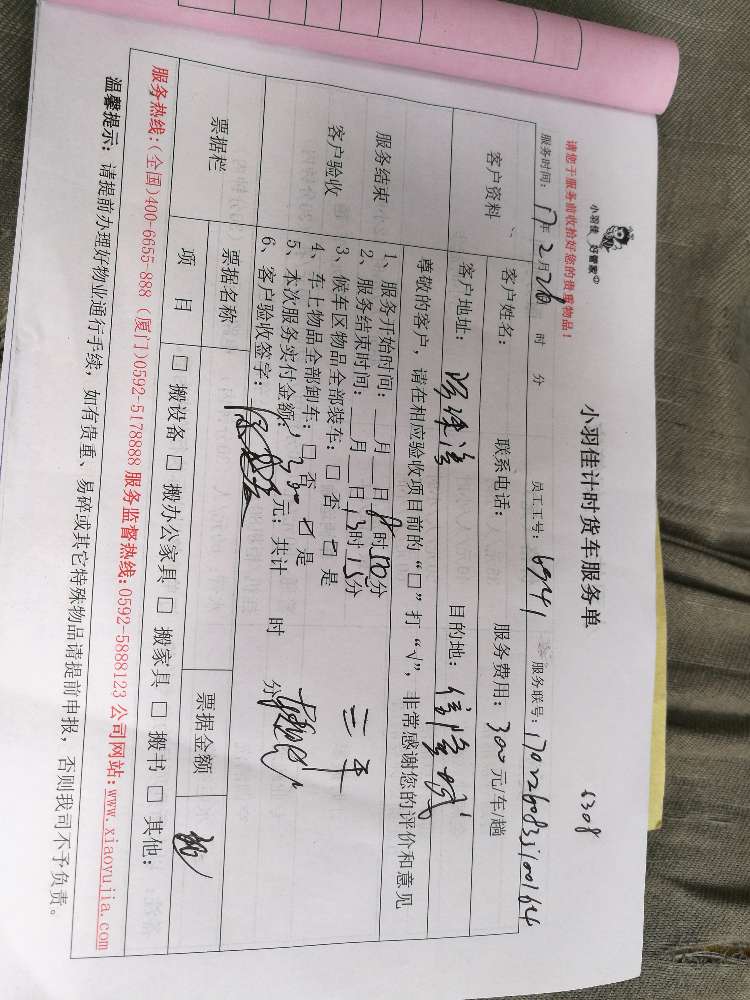 请您于服务前收拾好您的贵重物品！
小羽佳 好管家
6308
小羽佳计时货车服务单
服务时间：17年2月26日 时 分 员工工号：6941 服务联号：170226083310164
客户资料 客户姓名： 联系电话： 服务费用：300元/车/趟
客户地址： 目的地：
尊敬的客户，请在相应验收项目前的“□”打“√”，非常感谢您的评价和意见
服务结束
客户验收
1、服务开始时间：__月__日8时50分
2、服务结束时间：__月__日13时15分
3、候车区物品全部装车：□ 否 ☑ 是
4、车上物品全部卸车：□ 否 ☑ 是
5、本次服务实付金额：1300元；共计 时 分
6、客户验收签字：
票据栏 票据名称 票据金额
项 目 □ 搬设备 □ 搬办公家具 □ 搬家具 □ 搬书 □ 其他：
服务热线:(全国)400-6655-888 (厦门)0592-5178888 服务监督热线:0592-5888123 公司网站:www.xiaoyujia.com
温馨提示：请提前办理好物业通行手续，如有贵重、易碎或其它特殊物品请提前申报，否则我司不予负责。